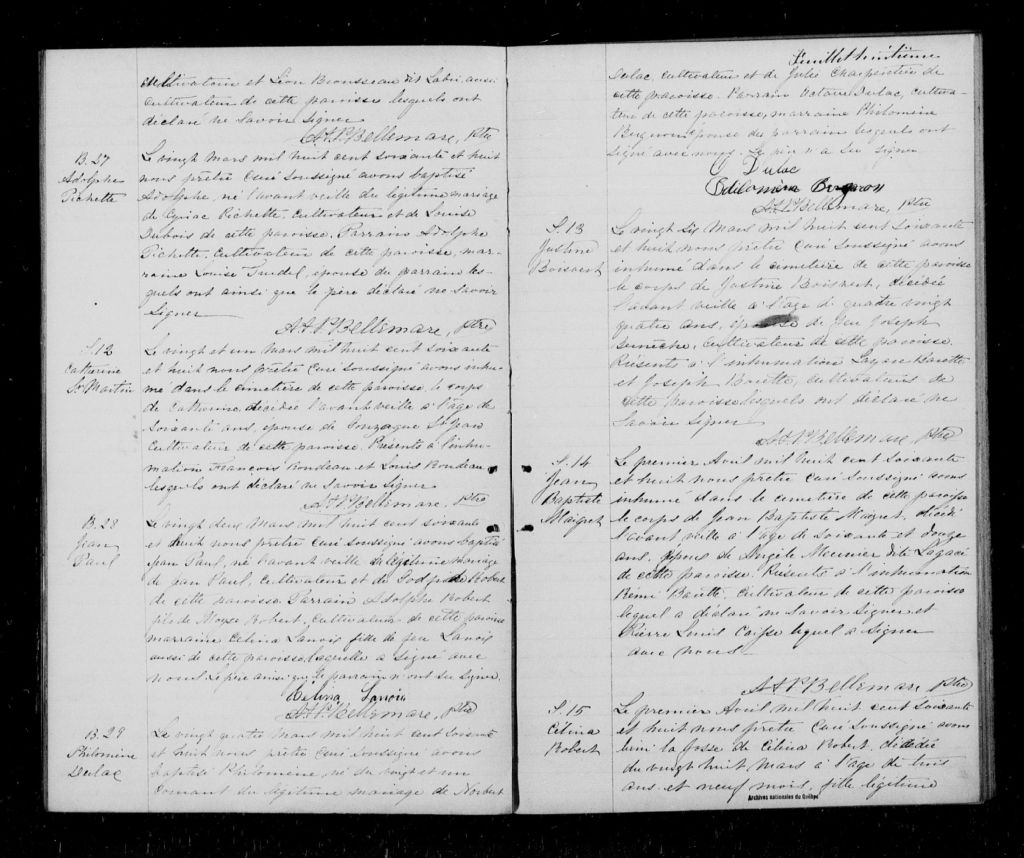 cultivateur et Léon Brousseau dit Labri aussi
cultivateur de cette paroisse lesquels ont
déclaré ne savoir signer
A.P. Bellemare, Ptre
B. 27
Adolphe
Pichette
Le vingt Mars mil huit cent soixante et huit
nous prêtre curé soussigné avons baptisé
Adolphe, né l'avant veille du légitime mariage
de Cyriac Pichette, cultivateur et de Louise
Dubois de cette paroisse. Parrain Adolphe
Pichette, cultivateur de cette paroisse, mar-
raine Louise Trudel, épouse du parrain les-
quels ont ainsi que le père déclaré ne savoir
signer
A.P. Bellemare, Ptre
S. 12
Catherine
St Martin
Le vingt et un Mars mil huit cent soixante
et huit nous prêtre curé soussigné avons inhu-
mé dans le cimetière de cette paroisse le corps
de Catherine décédée l'avant veille à l'âge de
soixante ans, épouse de Gonzague St Jean
cultivateur de cette paroisse. Présents à l'inhu-
mation François Rondeau et Louis Rondeau,
lesquels ont déclaré ne savoir signer
A.P. Bellemare, Ptre
B. 28
Jean
Paul
Le vingt deux Mars mil huit cent soixante
et huit nous prêtre curé soussigné avons baptisé
Jean Paul, né l'avant veille du légitime mariage
de Jean Paul, cultivateur et de Robert
de cette paroisse. Parrain Adolphe Robert
fils de Moyse Robert, cultivateur de cette paroisse
marraine Célina Lanois fille de feu Lanois
aussi de cette paroisse, laquelle a signé avec
nous. Le père ainsi que le parrain n'ont su signer.
Celina Lanois
A.P. Bellemare, Ptre
B. 29
Philomine
Dulac
Le vingt quatre Mars mil huit cent soixante
et huit nous prêtre curé soussigné avons
baptisé Philomène, né du vingt et un
courant du légitime mariage de Norbert
Feuillet huitième
Dulac, cultivateur et de Julie Charpentier de
cette paroisse. Parrain Octave Dulac, cultiva-
teur de cette paroisse, marraine Philomine
Bergeron épouse du parrain lesquels ont
signé avec nous. Le père n'a su signer
O Dulac
Philomène Bergeron
A.P. Bellemare, Ptre
S. 13
Justine
Boisvert
Le vingt six Mars mil huit cent soixante
et huit nous prêtre curé soussigné avons
inhumé dans le cimetière de cette paroisse
le corps de Justine Boisvert, décédée
l'avant veille à l'âge de quatre vingt
quatre ans, épouse de feu Joseph
cultivateur de cette paroisse.
Présents à l'inhumation Barette
et Joseph Barette, cultivateurs de
cette paroisse lesquels ont déclaré ne
savoir signer
A.P. Bellemare Ptre
S. 14
Jean
Baptiste
Maigret
Le premier Avril mil huit cent soixante
et huit nous prêtre curé soussigné avons
inhumé dans le cimetière de cette paroisse
le corps de Jean Baptiste Maigret, décédé
l'avant veille à l'âge de soixante et douze
ans, époux de Angèle Meunier dite Lagacé
de cette paroisse. Présents à l'inhumation
Rémi Barette, cultivateur de cette paroisse
lequel a déclaré ne savoir signer et
Pierre Louis Caisse lequel a signé
avec nous
A.P. Bellemare Ptre
S. 15
Célina
Robert
Le premier Avril mil huit cent soixante
et huit nous prêtre curé soussigné avons
béni la fosse de Célina Robert, décédée
du vingt huit Mars à l'âge de trois
ans et neuf mois, fille légitime
Archives nationales du Québec